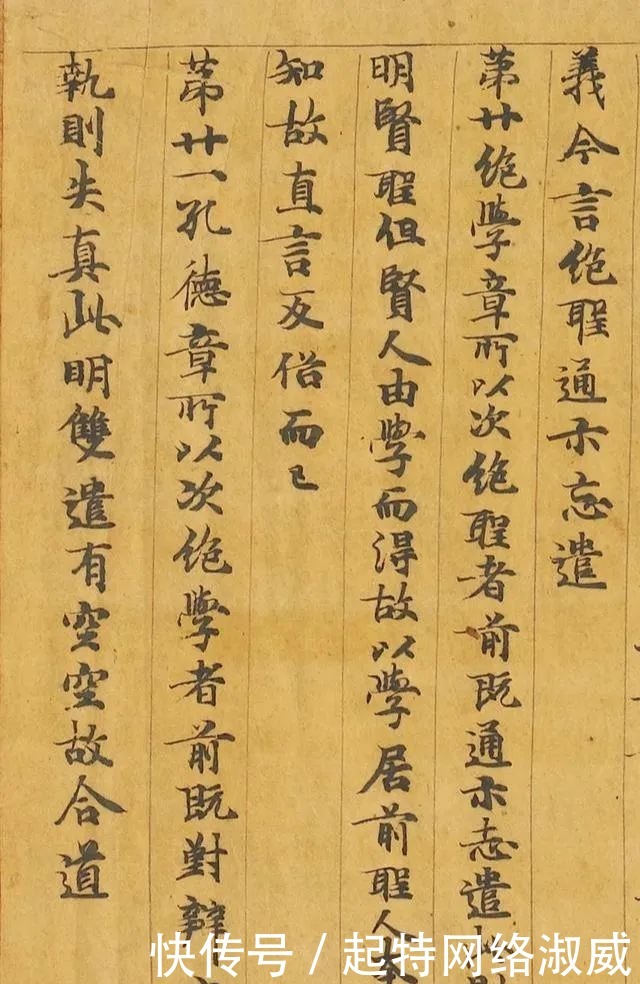 義今言絶聖通示忘遣
第廿絶學章所以次絶聖者前既通示忘遣此
明賢聖但賢人由學而得故以學居前聖人
知故直言反俗而已
第廿一孔德章所以次絶學者前既對辯
執則失真此明雙遣有空空故合道
快传号 / 起特网络淑威